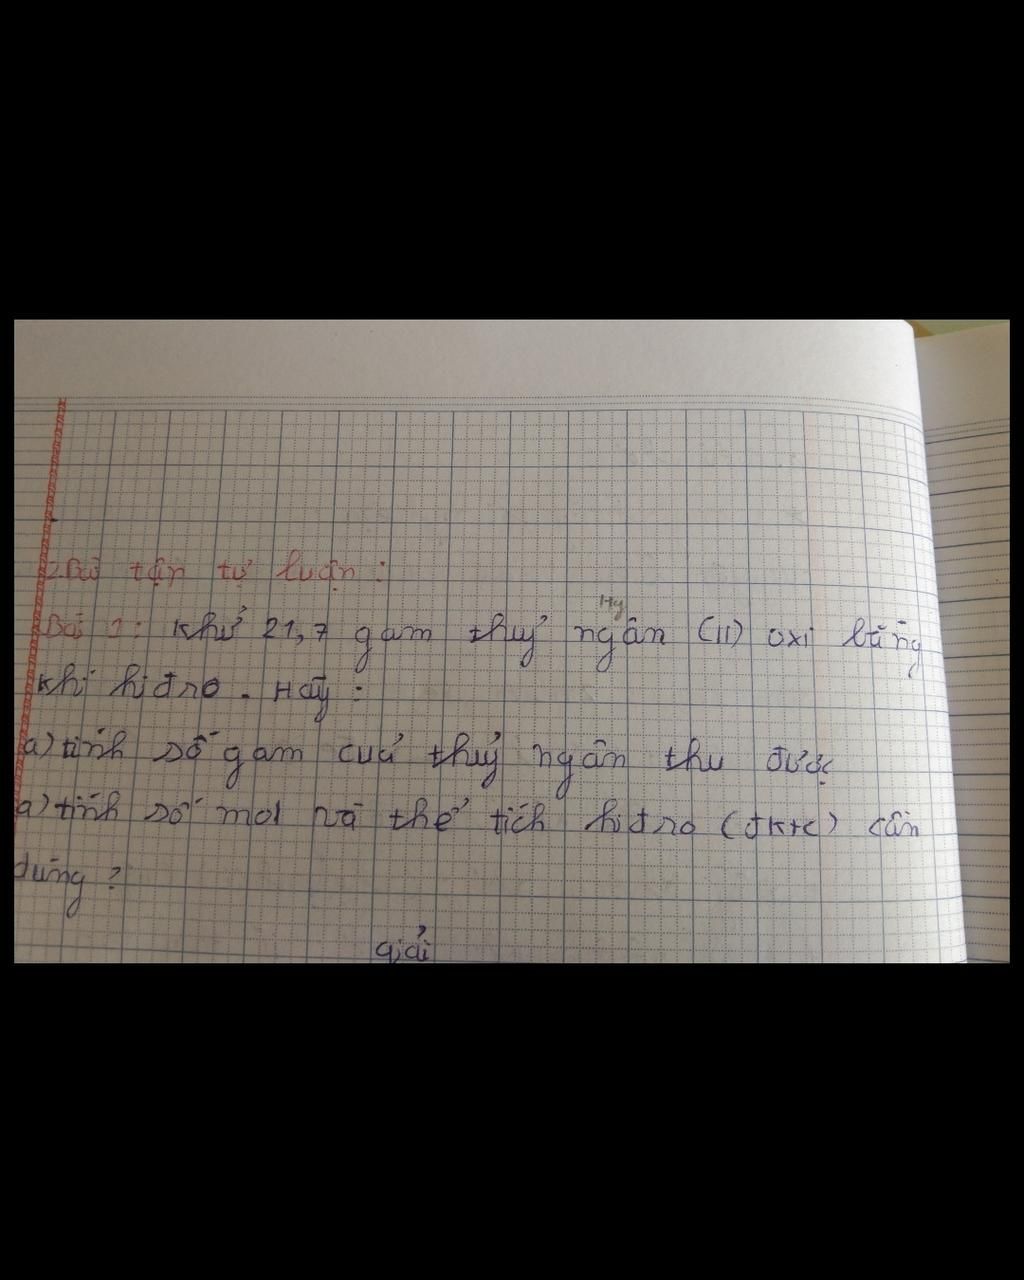 2. Bài tập tự luận :
Hg
Bài 1 : Khử 21,7 gam thuỷ ngân (II) oxi bằng
khí hiđro . Hãy :
a) tính số gam cuả thuỷ ngân thu được
a) tính số mol và thể tích hiđro (đktc) cần
dùng ?
giải